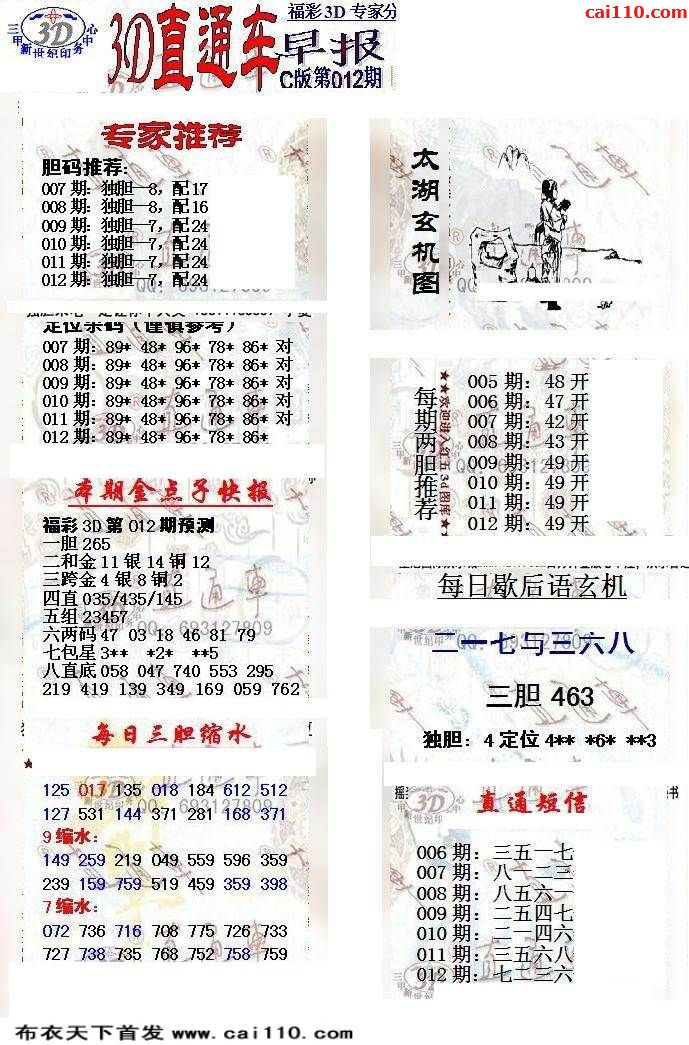 cai110.com
福彩3D 专家分
三甲 3D 中心
新世纪印务
3D直通车
早报
C版第012期
专家推荐
胆码推荐:
007 期: 独胆—8, 配17
008 期: 独胆—8, 配16
009 期: 独胆—7, 配24
010 期: 独胆—7, 配24
011 期: 独胆—7, 配24
012 期: 独胆—7, 配24
定位杀码 (谨慎参考)
007 期: 89* 48* 96* 78* 86* 对
008 期: 89* 48* 96* 78* 86* 对
009 期: 89* 48* 96* 78* 86* 对
010 期: 89* 48* 96* 78* 86* 对
011 期: 89* 48* 96* 78* 86* 对
012 期: 89* 48* 96* 78* 86*
本期金点子快报
福彩 3D 第 012 期预测
一胆 265
二和金 11 银 14 铜 12
三跨金 4 银 8 铜 2
四直 035/435/145
五组 23457
六两码 47 03 18 46 81 79
七包星 3** *2* **5
八直底 058 047 740 553 295
219 419 139 349 169 059 762
每日三胆缩水
125 017 135 018 184 612 512
127 531 144 371 281 168 371
9 缩水:
149 259 219 049 559 596 359
239 159 759 519 459 359 398
7 缩水:
072 736 716 708 775 726 733
727 738 735 768 752 758 759
太湖玄机图
每期两胆推荐
★★欢迎进入红五3d图库★★
005 期: 48 开
006 期: 47 开
007 期: 42 开
008 期: 43 开
009 期: 49 开
010 期: 49 开
011 期: 49 开
012 期: 49 开
每日歇后语玄机
二一七与三六八
三胆 463
独胆: 4 定位 4** *6* **3
直通短信
006 期: 三五一七
007 期: 八一二三
008 期: 八五六一
009 期: 二五四七
010 期: 二一四六
011 期: 三五六八
012 期: 七二三六
QQ: 693127809
布衣天下首发 www.cai110.com